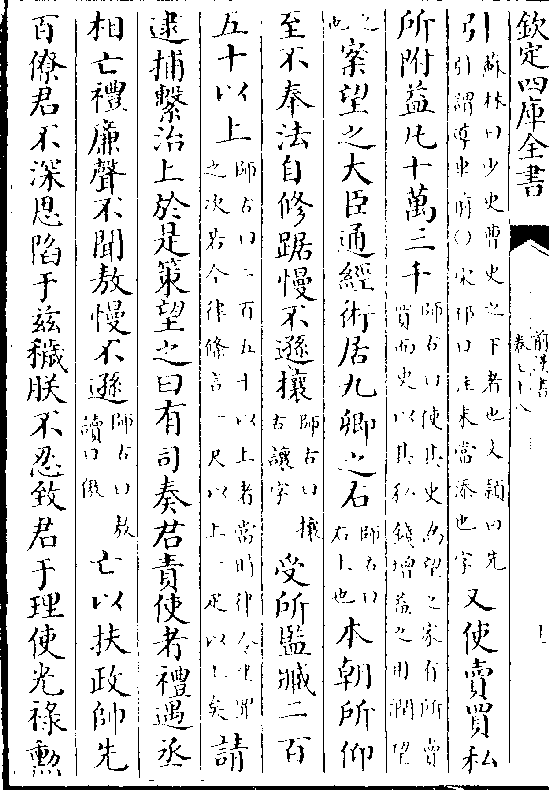 欽定四庫全書
前漢書
卷七十八
引蘇林曰少史曹史之下者也文穎曰先
引謂導車前○宋祁曰注末當添也字又使賣買私
所附益凡十萬三千師古曰使其史為望之家有所賣
買而史以其私錢增益之用潤望
之也案望之大臣通經術居九卿之右師古曰
右上也本朝所仰
至不奉法自修踞慢不遜攘師古曰攘
古讓字受所監臧二百
五十以上師古曰二百五十以上者當時律令坐罪
之次若今律條言一尺以上一疋以上矣請
逮捕繫治上於是策望之曰有司奏君責使者禮遇丞
相亡禮廉聲不聞敖慢不遜師古曰敖
讀曰傲亡以扶政帥先
百僚君不深思陷于茲穢朕不忍致君于理使光祿勲